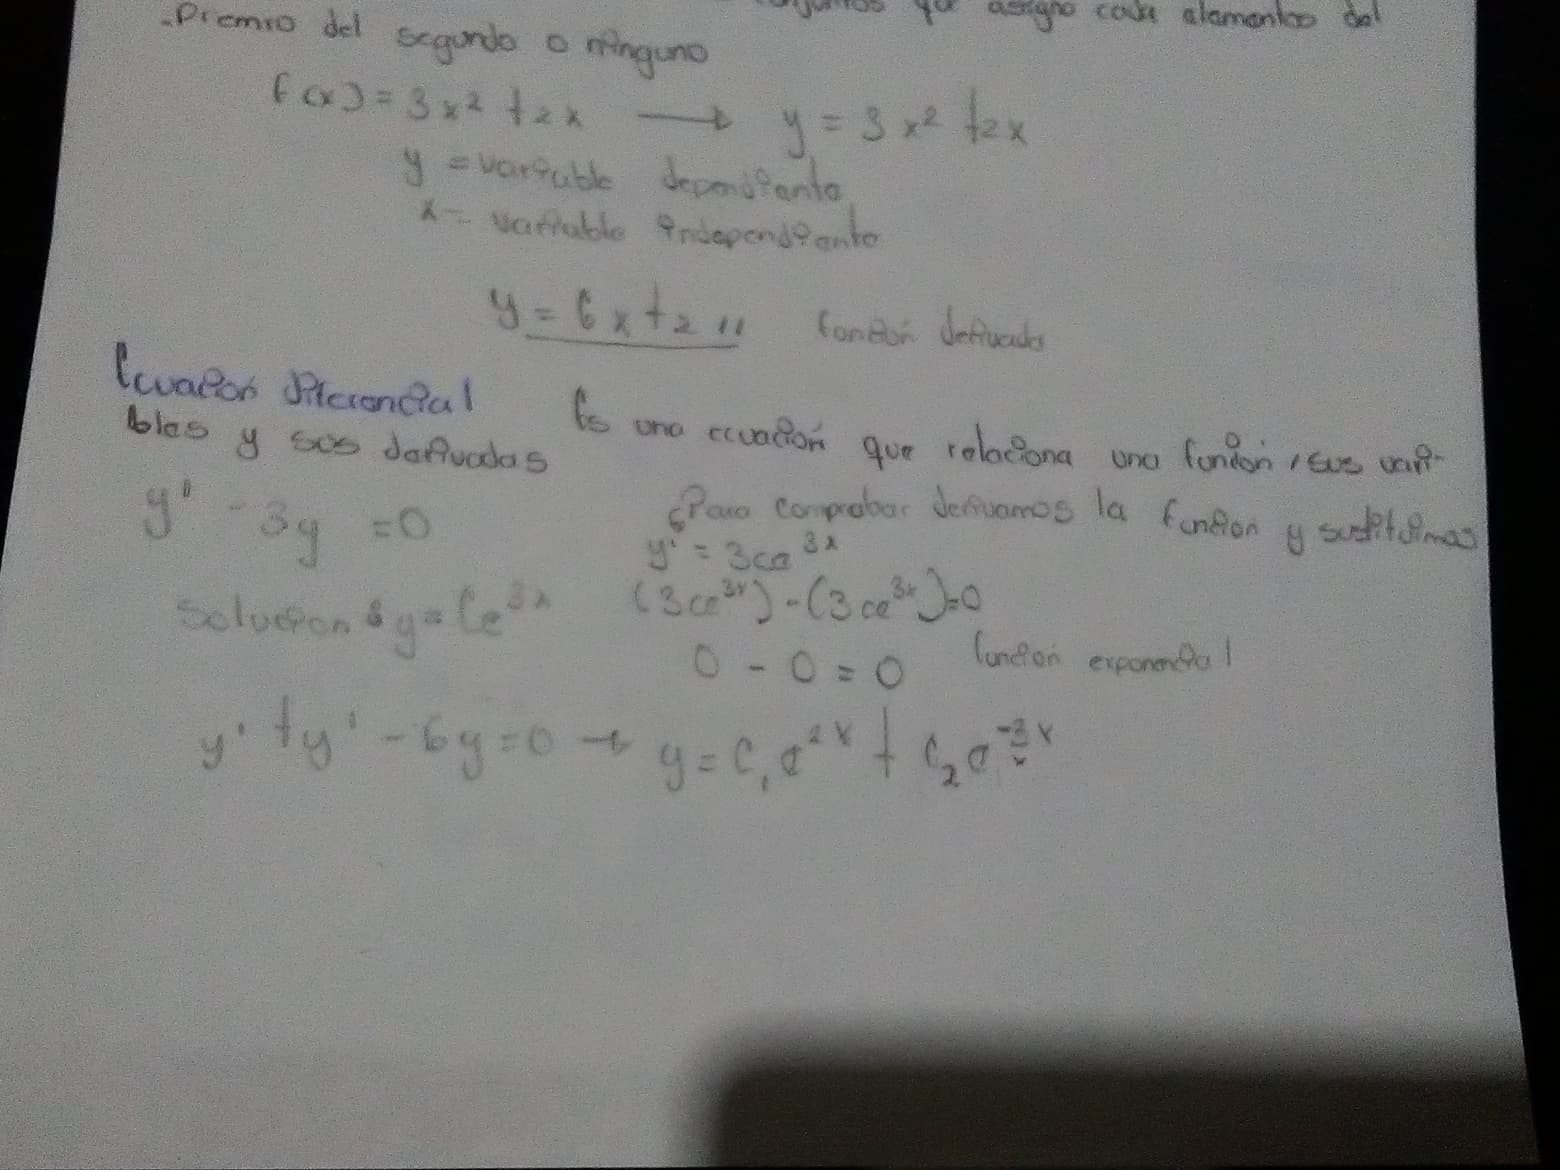 que asigna cada elementos del
Premro del segundo o ninguno
f(x) = 3x² + 2x → y = 3x² + 2x
y = variable dependiente
x = variable independiente
y = 6x + 2 " función derivada
Ecuación diferencial Es una ecuación que relaciona una función, sus vari-
bles y sus derivadas
y' - 3y = 0 Para comprobar derivamos la función y sustituimos
y' = 3ce³ˣ
Solucion: y = Ce³ˣ (3ce³ˣ) - (3ce³ˣ) = 0
0 - 0 = 0 función exponencial
y' + y' - 6y = 0 → y = C₁e²ˣ + C₂e⁻³ˣ